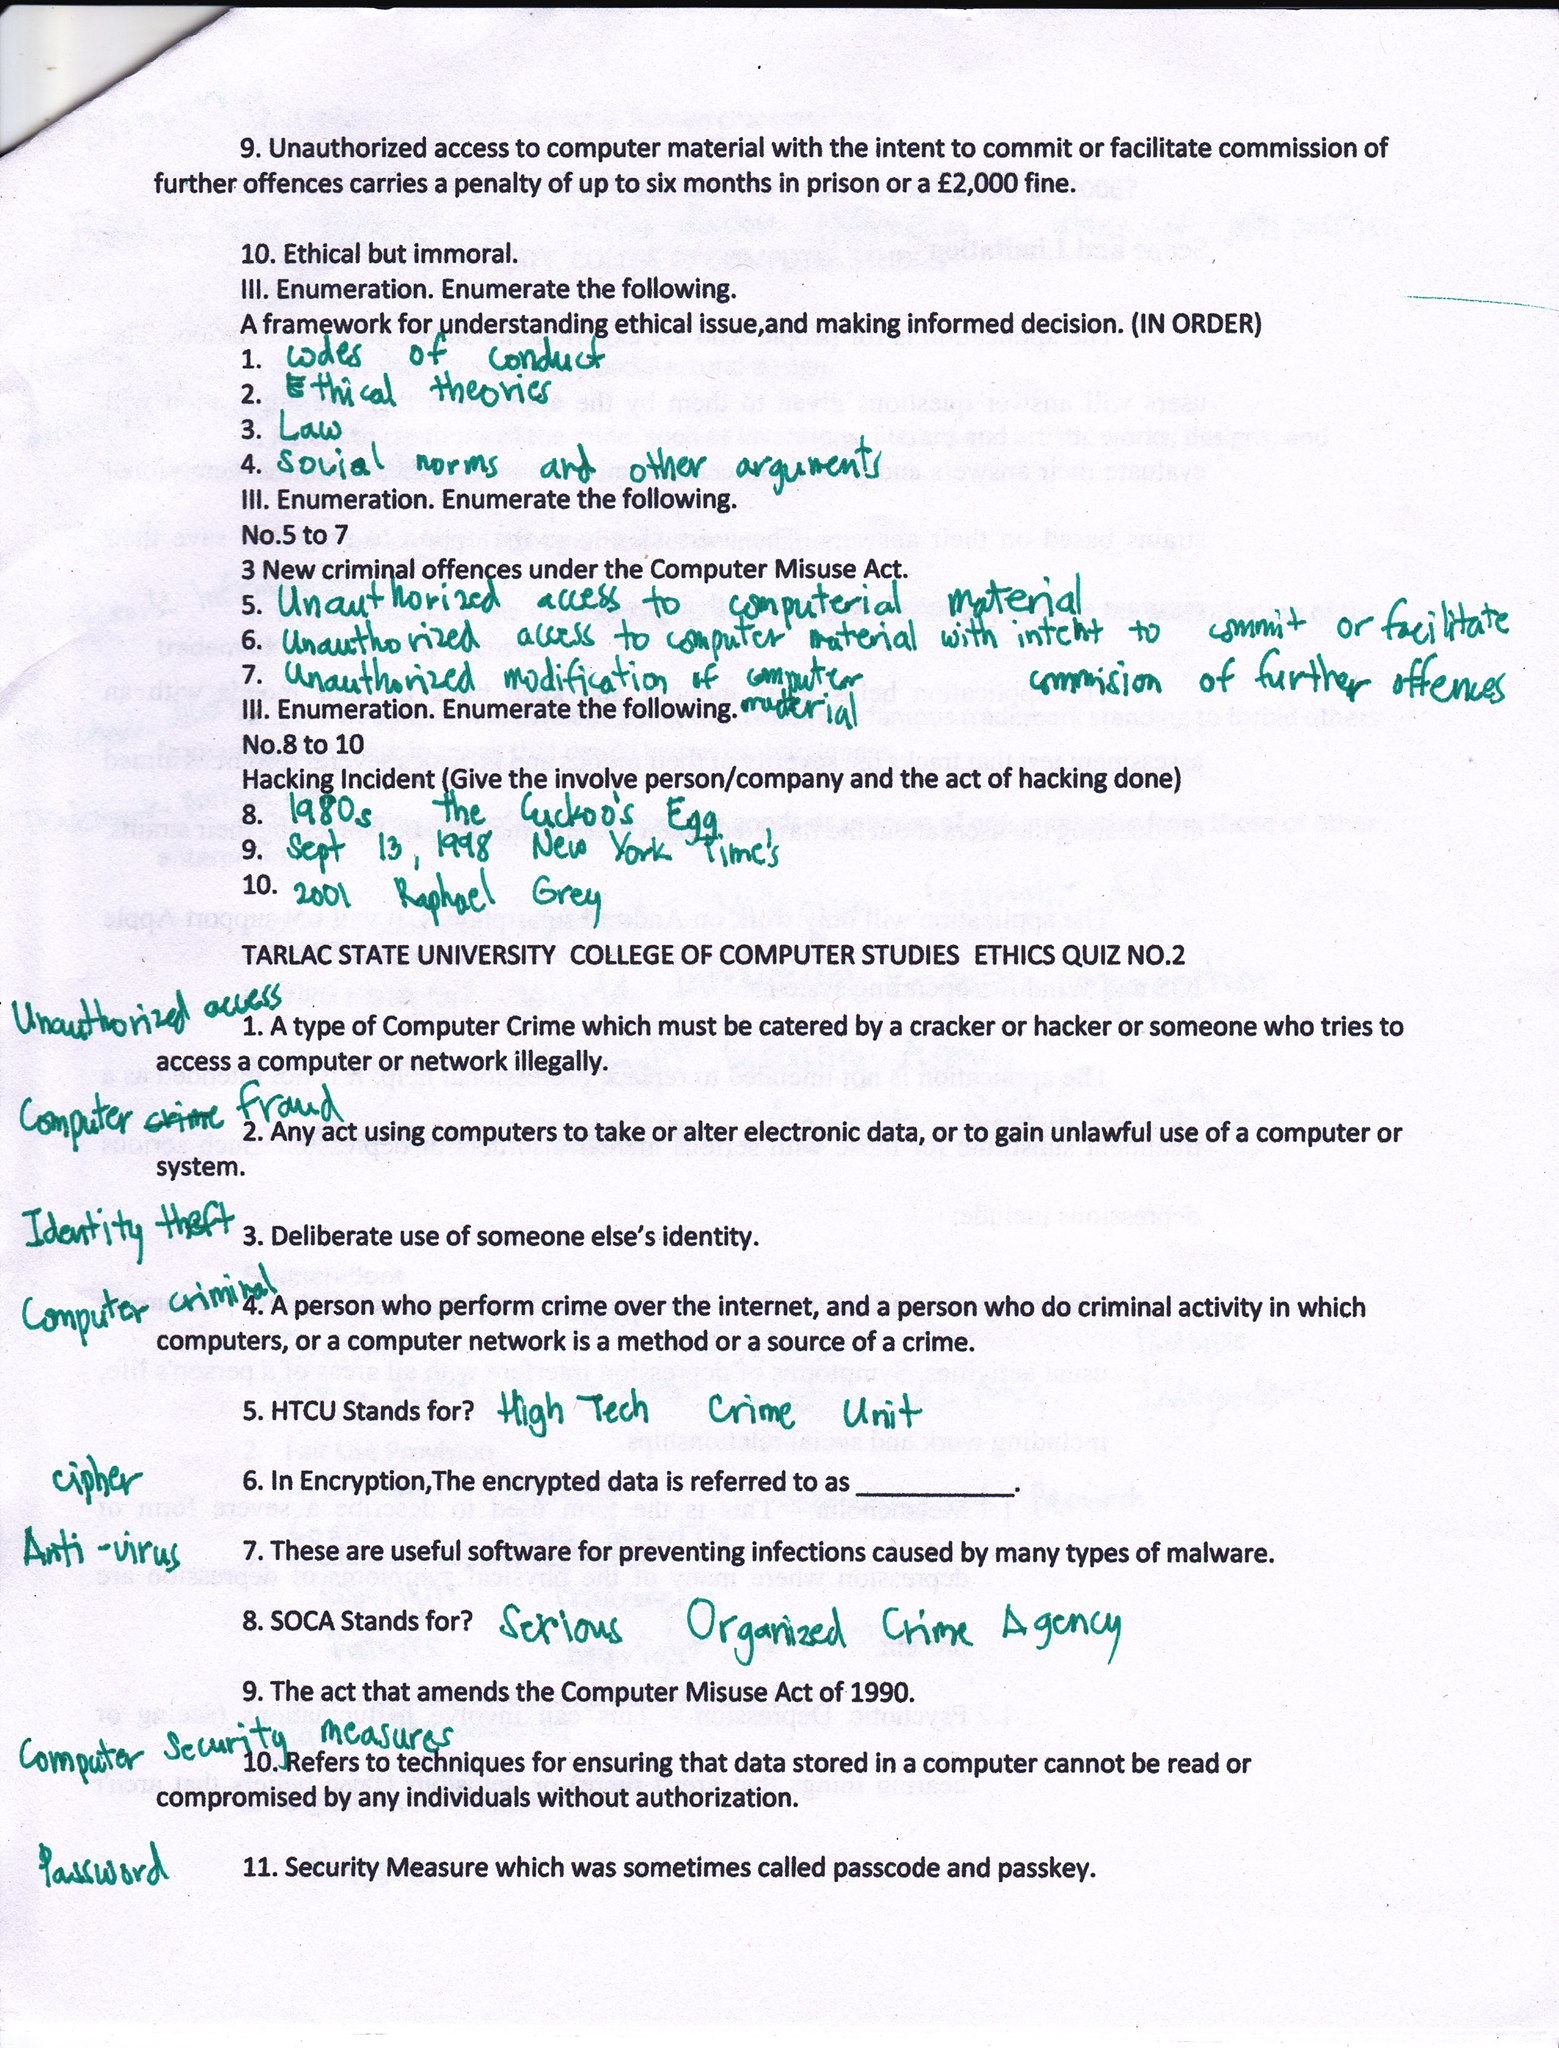 9. Unauthorized access to computer material with the intent to commit or facilitate commission of
further offences carries a penalty of up to six months in prison or a £2,000 fine.
10. Ethical but immoral.
III. Enumeration. Enumerate the following.
A framework for understanding ethical issue,and making informed decision. (IN ORDER)
1. codes of conduct
2. Ethical theories
3. Law
4. Social norms and other arguments
III. Enumeration. Enumerate the following.
No.5 to 7
3 New criminal offences under the Computer Misuse Act.
5. Unauthorized access to computerial material
6. Unauthorized access to computer material with intent to commit or facilitate
commision of further offences
7. Unauthorized modification of computer
material
III. Enumeration. Enumerate the following.
No.8 to 10
Hacking Incident (Give the involve person/company and the act of hacking done)
8. 1980s the Cuckoo's Egg
9. Sept 13, 1998 New York Time's
10. 2001 Raphael Grey
TARLAC STATE UNIVERSITY COLLEGE OF COMPUTER STUDIES ETHICS QUIZ NO.2
Unauthorized access
1. A type of Computer Crime which must be catered by a cracker or hacker or someone who tries to
access a computer or network illegally.
Computer crime fraud
2. Any act using computers to take or alter electronic data, or to gain unlawful use of a computer or
system.
Identity theft
3. Deliberate use of someone else's identity.
Computer criminal
4. A person who perform crime over the internet, and a person who do criminal activity in which
computers, or a computer network is a method or a source of a crime.
5. HTCU Stands for? High Tech Crime Unit
cipher
6. In Encryption,The encrypted data is referred to as ____________.
Anti-virus
7. These are useful software for preventing infections caused by many types of malware.
8. SOCA Stands for? Serious Organized Crime Agency
9. The act that amends the Computer Misuse Act of 1990.
Computer Security measures
10. Refers to techniques for ensuring that data stored in a computer cannot be read or
compromised by any individuals without authorization.
Password
11. Security Measure which was sometimes called passcode and passkey.